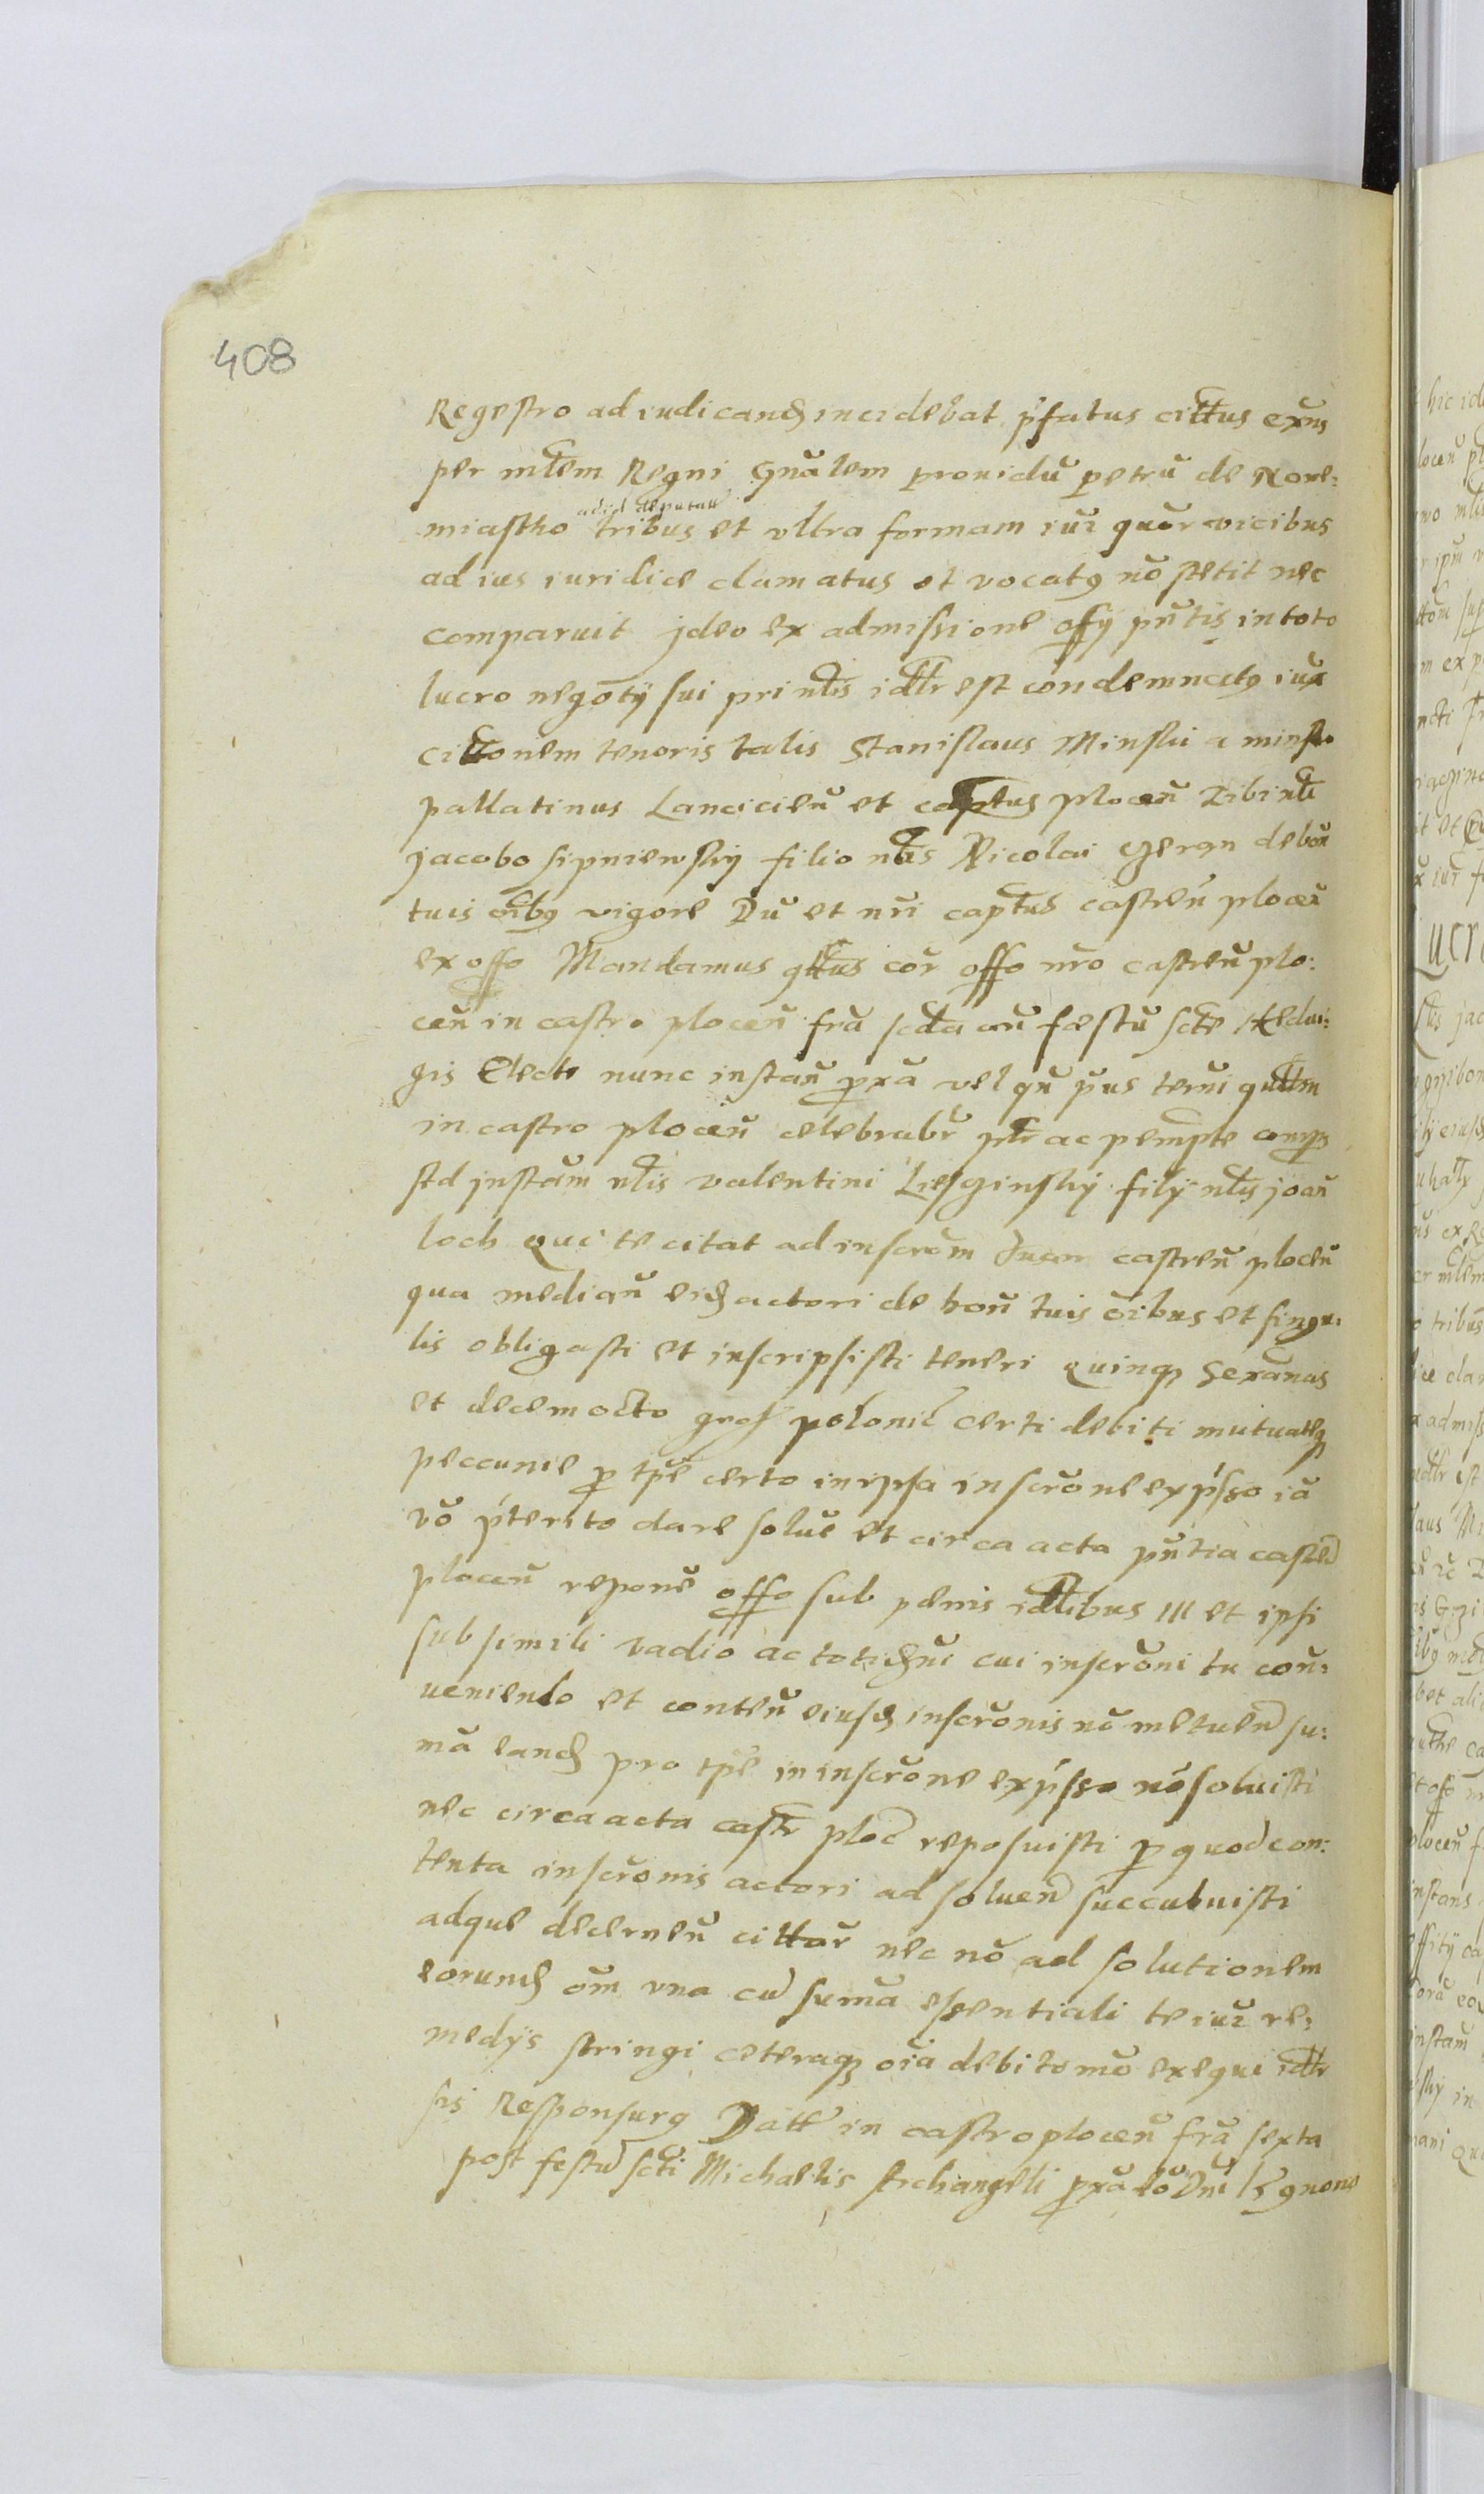 408
Registro ad iudicand incidebat pfatus cittus exns
per mtlem Regni Gnalem prouidu petru de Nowe:
ad id deputatu
miastho tribus et vltra formam iur quor vicibus
ad ius iuridice clamatus et vocatq no stetit nec
comparuit jdeo ex admissione offy pntis in toto
lucro negoty sui prin tlis idtr est condemnatq iux
cittonem tenoris talis Stanislaus Minski a minsko
pallatinus Lancicien et captus plocen Tibi ntli
jacobo sipniewsky filio ntlis Nicolai de bon
tuis oibq vigore Du et nri captus castren plocen
ex offo Mandamus qttus cor offo nro castren plo:
cen in castro plocen fra scda an festu scte Hedui:
gis Elects nunc instan pxa vel qn pus termi qttlm
in castro plocen celebrabr ptr ac pempte compas
Ad jnstam ntlis valentini Liesginsky fily ntlis joan
loch qui te citat ad inscrom suam castren plocen
qua median eid actori de bon tuis oibus et singu:
lis obligasti et inscripsisti teneri quinq sexanas
et decem octo gros polonic certi debiti mutuateq
peccunie p tpe certo in ipsa inscrone expsso ia
vo pterito dare solue et circa acta pntia castren
plocen repone offo sub penis idtlibus III et ipsi
sub simili vadio ac totid cui inscroni tu con:
ueniendo et conten eiusd inscronis no metuen su:
ma eand pro tpe in inscrone expsso no soluisti
nec circa acta castr ploc reposuisti p quod con:
tenta inscronis actori ad soluen succubuisti
adque decernen cittar nec no ad solutionem
eorund om vna cu suma essentiali te iur re:
medys stringi ceteraq oia debito mo exequi idtr
sis Responsurq Datt in castro plocen fra sexta
post festu scti Michaelis Archangeli pxa Ao Dni nono